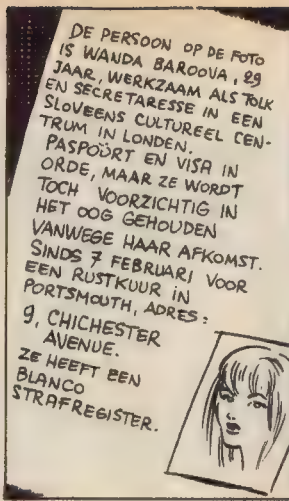 DE PERSOON OP DE FOTO
IS WANDA BAROOVA, 29
JAAR, WERKZAAM ALS TOLK
EN SECRETARESSE IN EEN
SLOVEENS CULTUREEL CEN-
TRUM IN LONDEN.
PASPOORT EN VISA IN
ORDE, MAAR ZE WORDT
TOCH VOORZICHTIG IN
HET OOG GEHOUDEN
VANWEGE HAAR AFKOMST.
SINDS 7 FEBRUARI VOOR
EEN RUSTKUUR IN
PORTSMOUTH, ADRES:
9, CHICHESTER
AVENUE.
ZE HEEFT EEN
BLANCO
STRAFREGISTER.